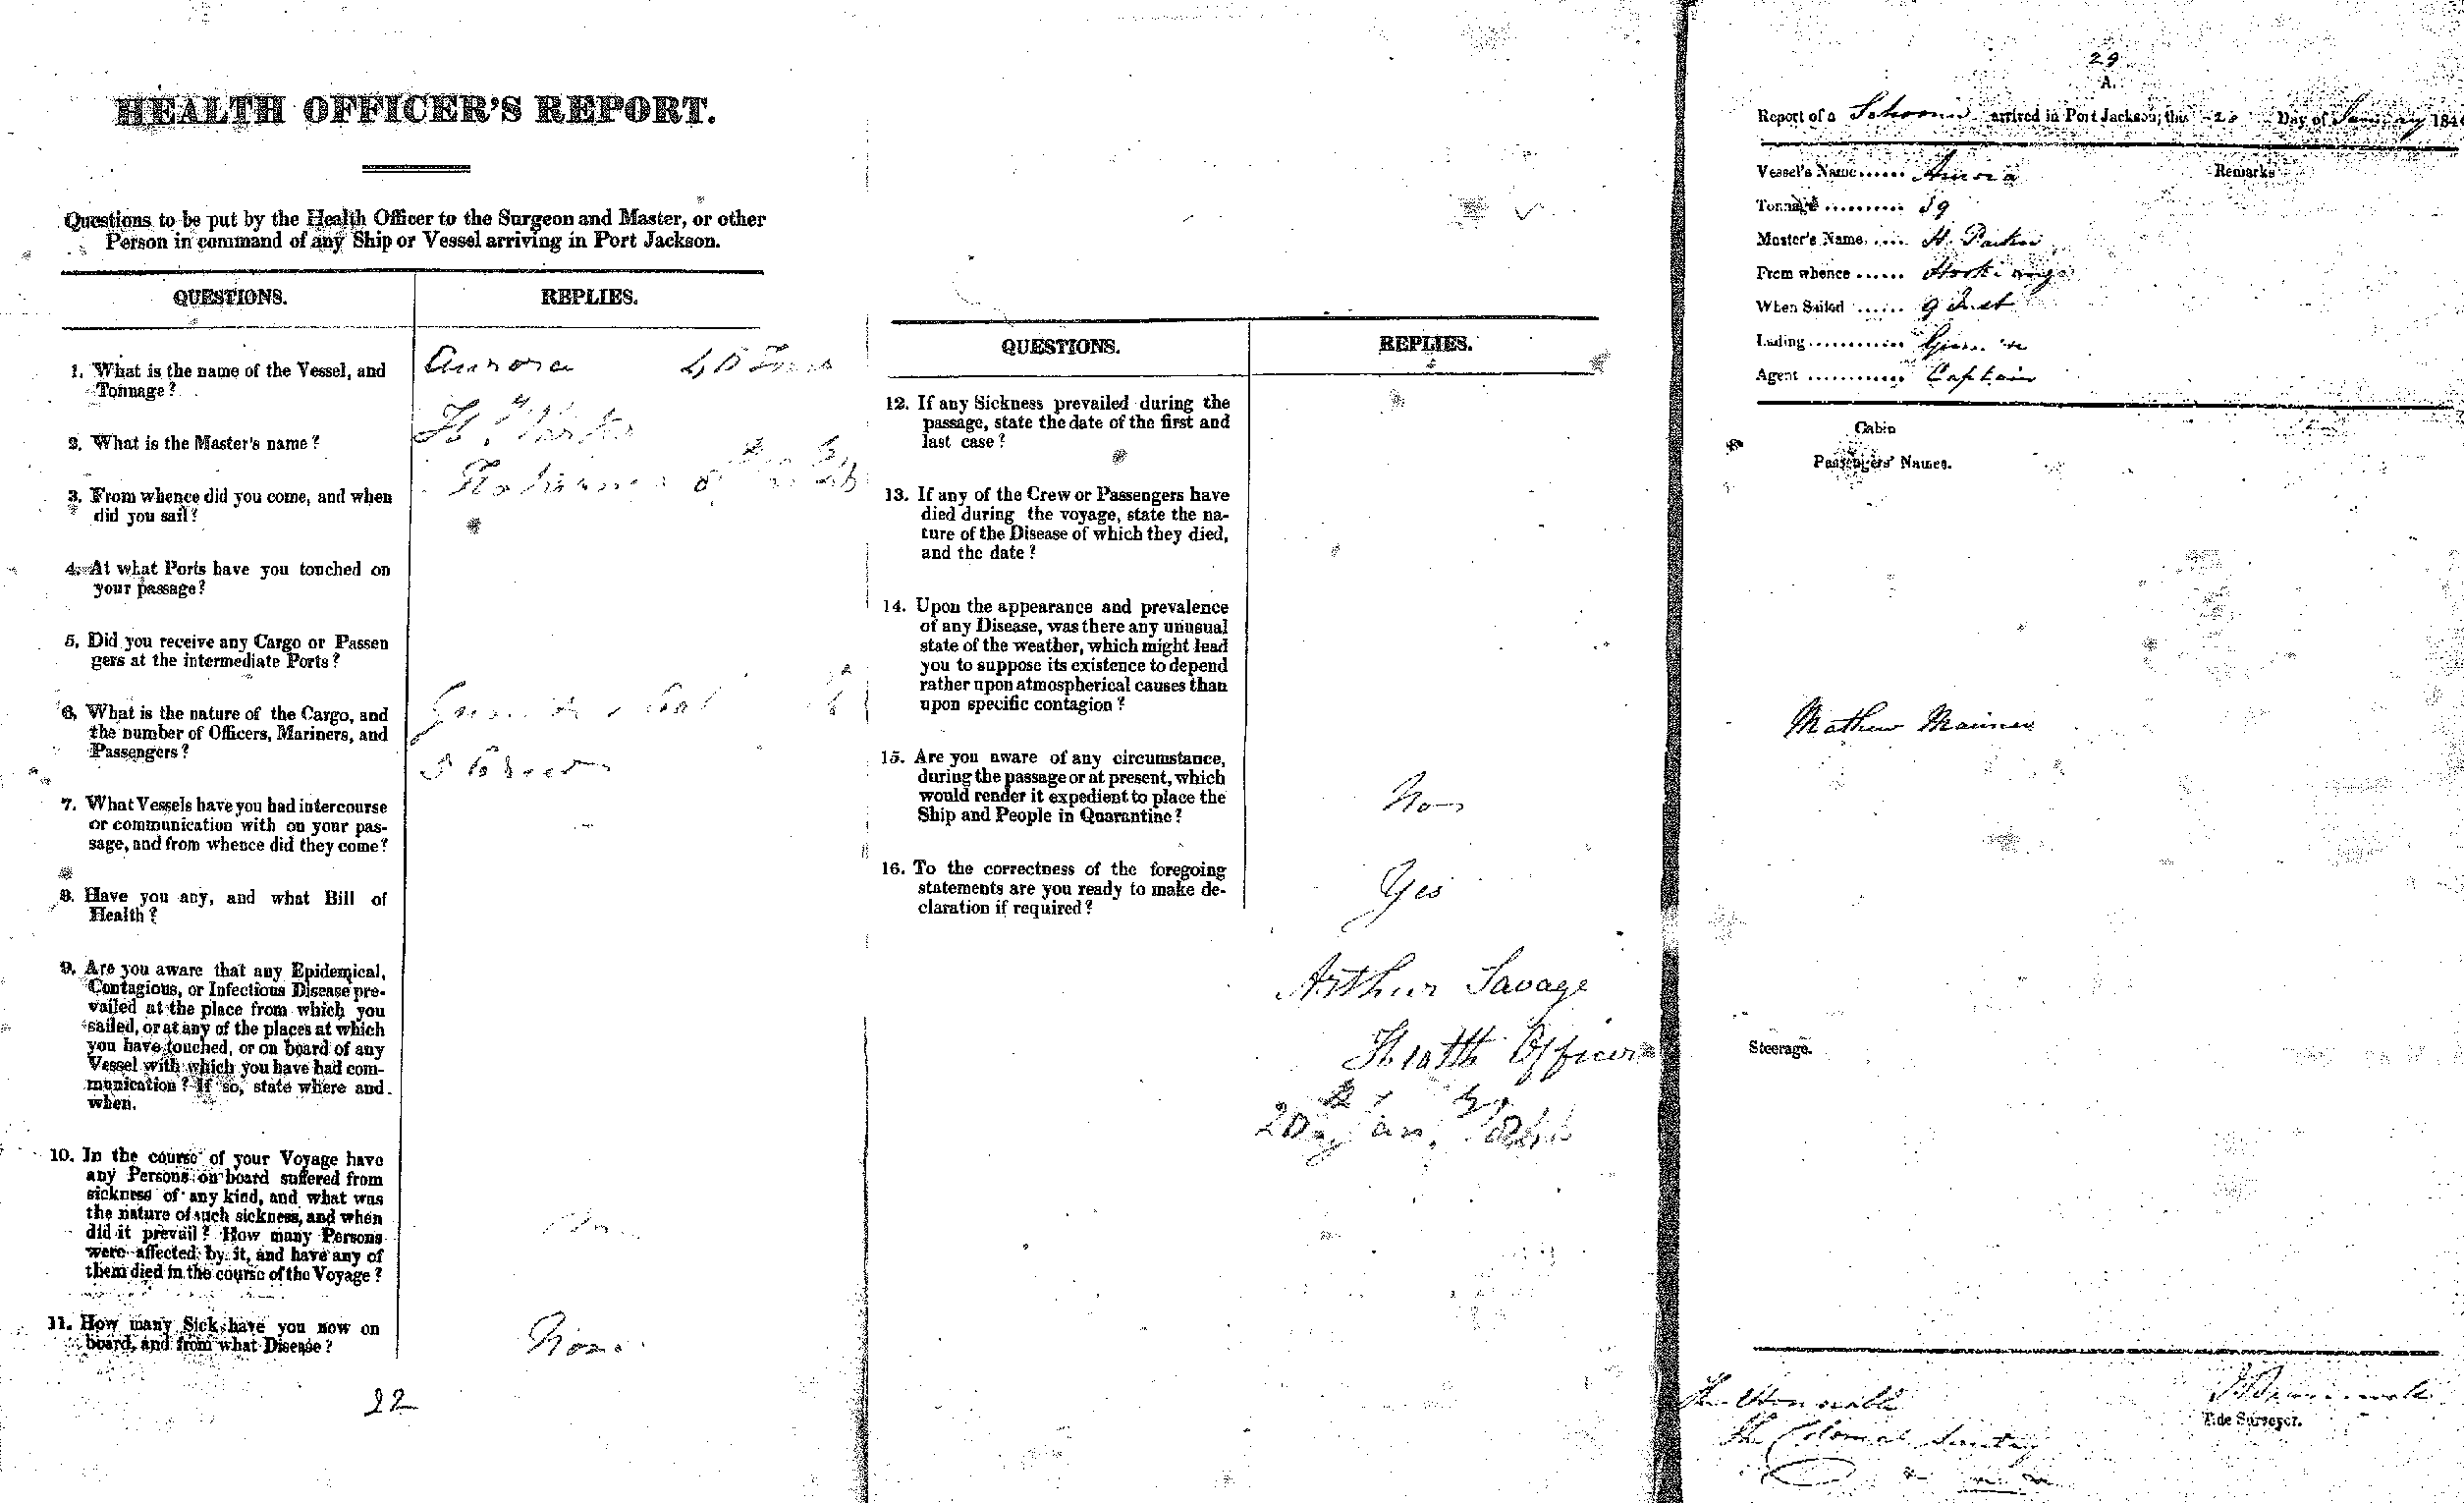 HEALTH OFFICER'S REPORT.
Questions to be put by the Health Officer to the Surgeon and Master, or other
Person in command of any Ship or Vessel arriving in Port Jackson.
QUESTIONS.
REPLIES.
1. What is the name of the Vessel, and
Tonnage?
Aurora
2. What is the Master's name?
3. From whence did you come, and when
did you sail?
4. At what Ports have you touched on
your passage?
5. Did you receive any Cargo or Passen
gers at the intermediate Ports?
6. What is the nature of the Cargo, and
the number of Officers, Mariners, and
Passengers?
7. What Vessels have you had intercourse
or communication with on your pas-
sage, and from whence did they come?
8. Have you any, and what Bill of
Health?
9. Are you aware that any Epidemical,
Contagious, or Infectious Disease pre-
vailed at the place from which you
sailed, or at any of the places at which
you have touched, or on board of any
Vessel with which you have had com-
munication? If so, state where and
when.
10. In the course of your Voyage have
any Persons on board suffered from
sickness of any kind, and what was
the nature of such sickness, and when
did it prevail? How many Persons
were affected by it, and have any of
them died in the course of the Voyage?
11. How many Sick have you now on
board, and from what Disease?
None
22
QUESTIONS.
REPLIES.
12. If any Sickness prevailed during the
passage, state the date of the first and
last case?
13. If any of the Crew or Passengers have
died during the voyage, state the na-
ture of the Disease of which they died,
and the date?
14. Upon the appearance and prevalence
of any Disease, was there any unusual
state of the weather, which might lead
you to suppose its existence to depend
rather upon atmospherical causes than
upon specific contagion?
15. Are you aware of any circumstance,
during the passage or at present, which
would render it expedient to place the
Ship and People in Quarantine?
16. To the correctness of the foregoing
statements are you ready to make de-
claration if required?
Yes
Arthur Savage
Health Officer
29
A.
Report of a Schooner arrived in Port Jackson, this 20 Day of January 184
Vessel's Name...... Aurora
Remarks
Tonnage .......... 39
Master's Name, .... H.
From whence ......
When Sailed ...... 9 Inst
Lading............
Agent ............ Captain
Cabin
Passengers' Names.
Mathew Mariner
Steerage.
The Honorable
The Colonial Secretary
Tide Surveyor.